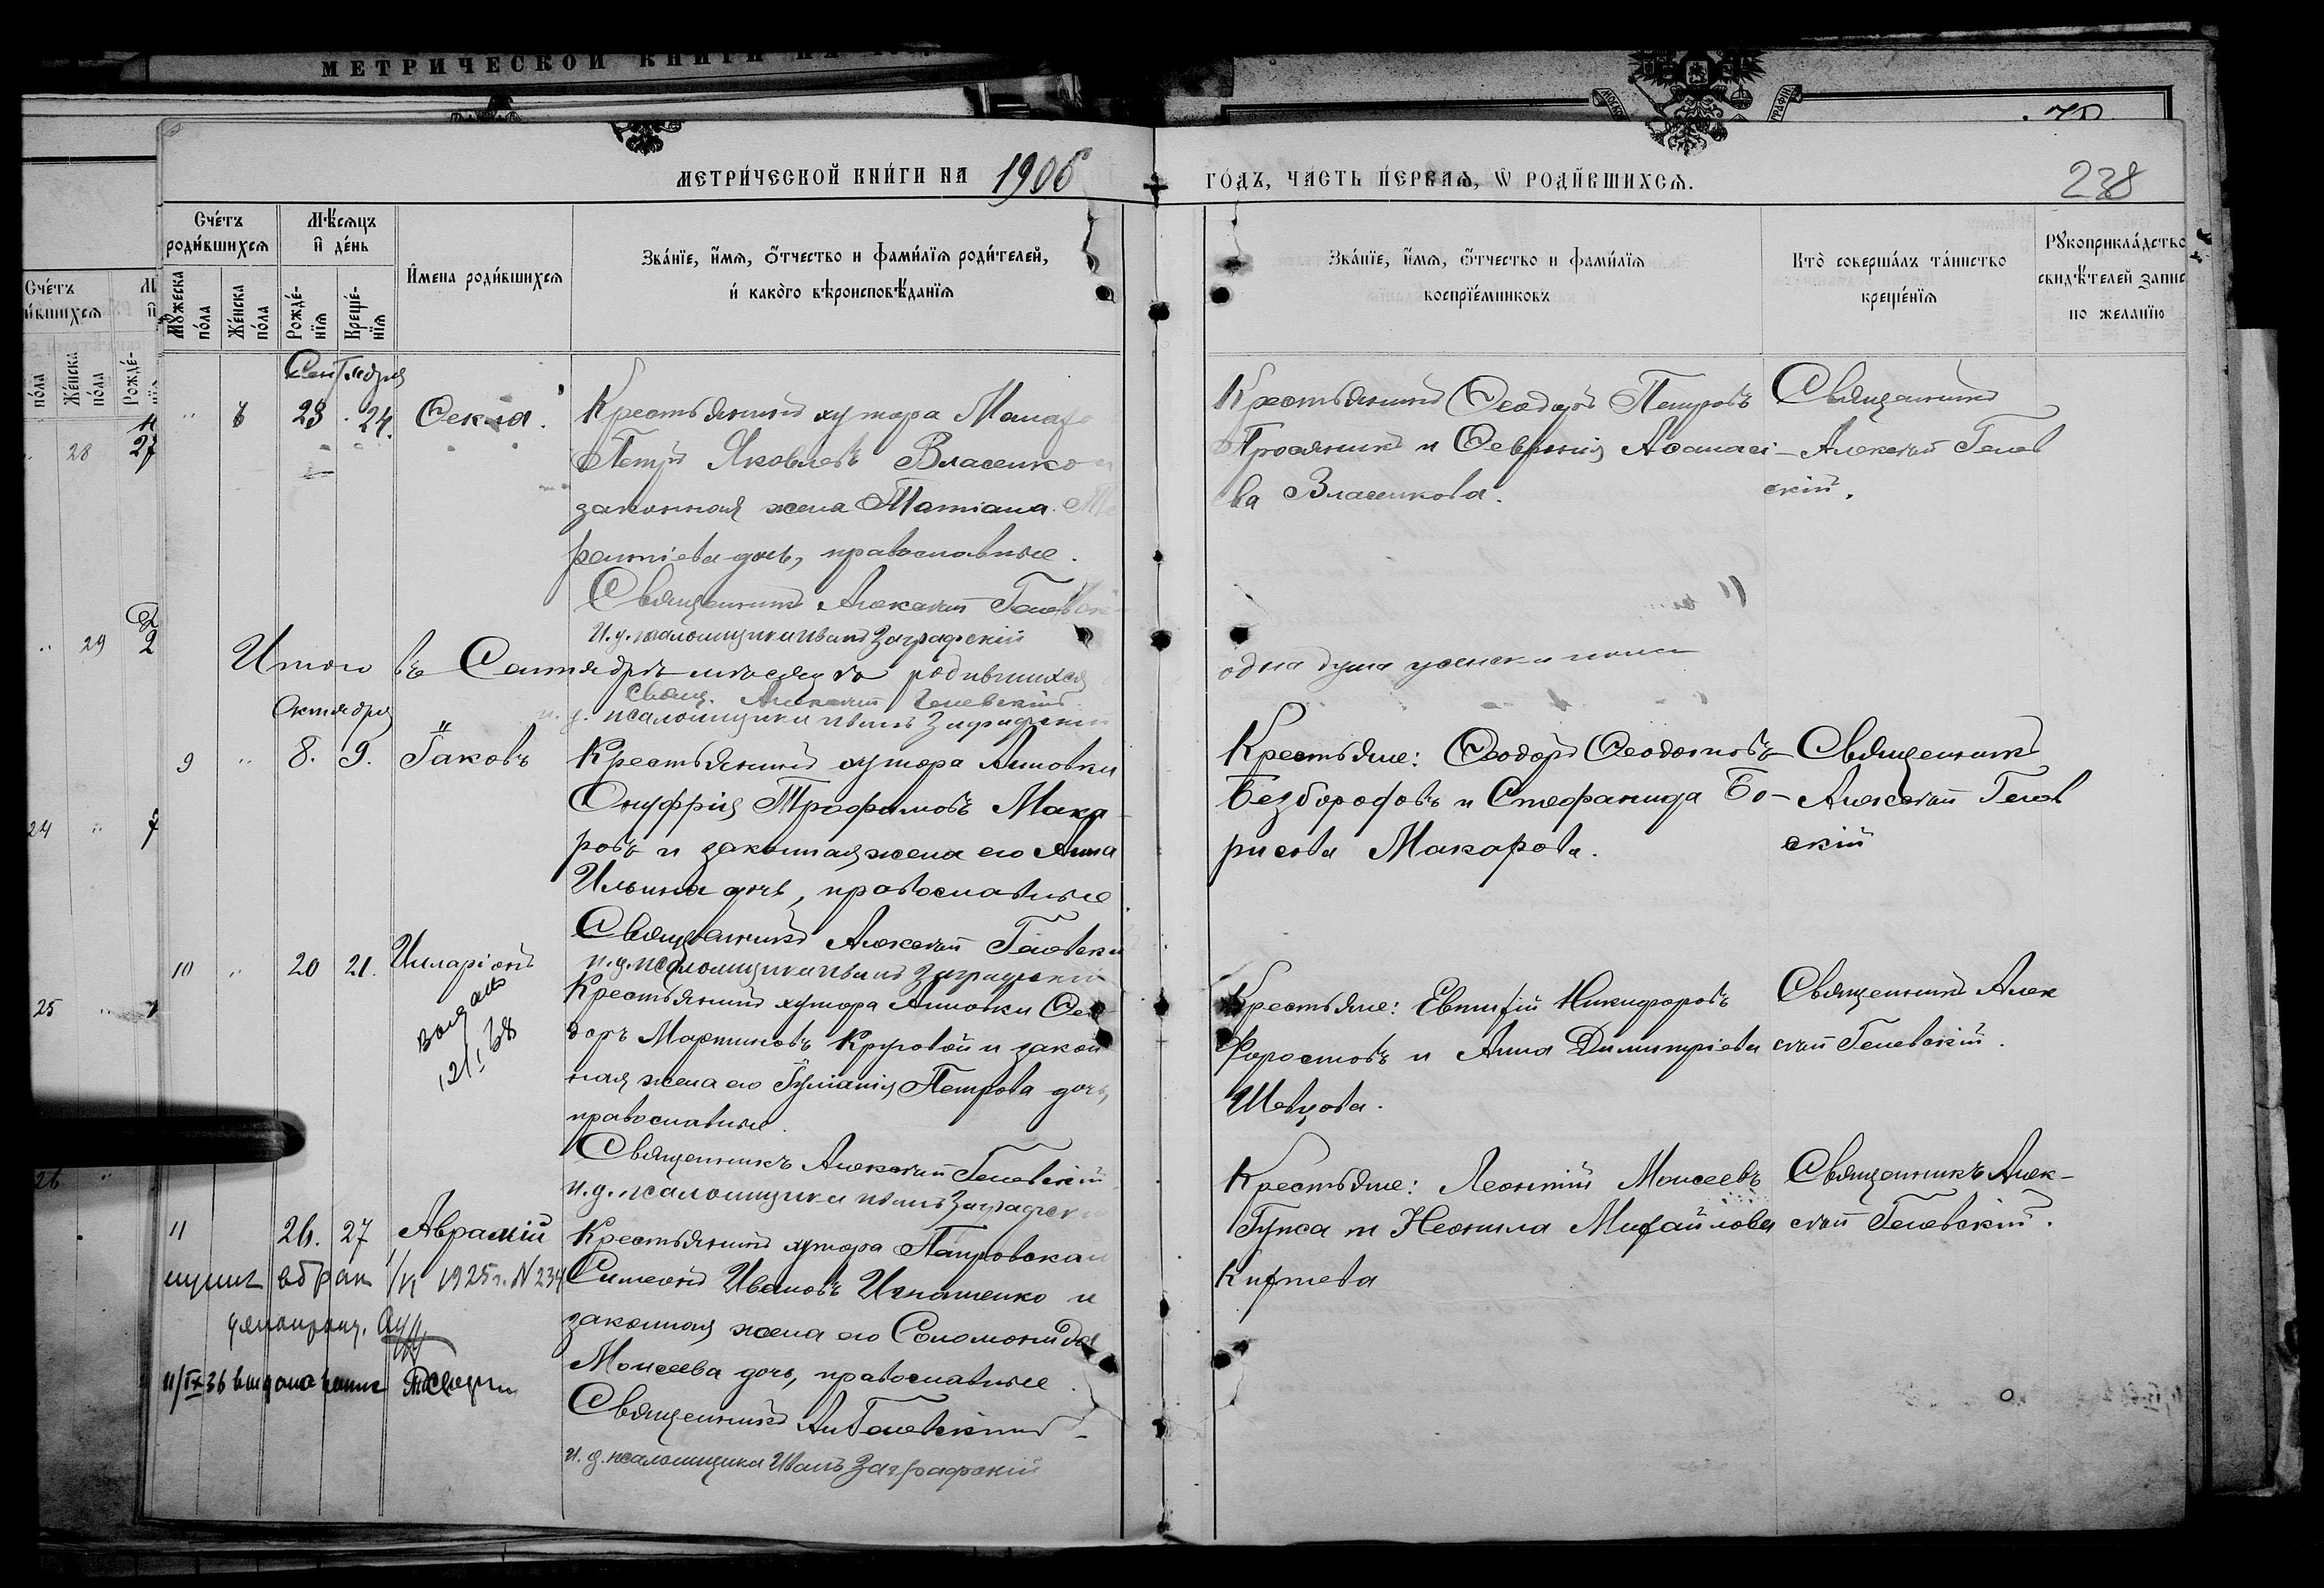 МЕТРИЧЕСКОЙ КНИГИ НА
МЕТРИ́ЧЕСКОЙ КНИ́ГИ НА 1906
ГО́ДЪ, ЧА́СТЬ ПЕ́РВАѦ, Ѡ РОДИ́ВШИХСѦ.
238
Сче́тъ роди́вшихсѧ
Мꙋ́жеска по́ла
Же́нска по́ла
Мѣ́сѧцъ и҆ де́нь
Рожде́-нїѧ
Креще́-нїѧ
И҆мена роди́вшихсѧ
Зва́нїе, и҆́мѧ, ѻ҆́тчество и фами́лїѧ роди́телей,
и́ како́го вѣроисповѣ́данїѧ
Зва́нїе, и҆́мѧ, ѻ҆́тчество и фами́лїѧ
воспрїе́мниковъ
Кто̀ соверша́лъ та́инство
креще́нїѧ
Рꙋкоприкла́дство
свидѣ́телей запис
по желанїю
Сентября
23 24. Ѳекла.
Крестьянинъ хутора
Петръ Яковлевъ Власенко и
законная жена Татіана
дочь, православные.
Священникъ Алексѣй
и. д. псаломщика Иванъ Заграфскій
Крестьянинъ Ѳеодоръ Петровъ
и Ѳевронія Аѳанасі-
ева Власенкова.
Священникъ
Алексѣй Гелев
скій.
Итого въ Сентябрѣ мѣсяцѣ родившихся
одна душа женска пола
Свящ. Алексѣй Гелевскій
и. д. псаломщика Иванъ Заграфскій
Октября
9 " 8. 9. Іаковъ
Крестьянинъ хутора Анновки
Онуфрій Трофимовъ Мака
ровъ и законная жена его Анна
Ильина дочь, православные
Священникъ Алексѣй Гелевскі
и. д. псаломщика Иванъ Заграфскій
Крестьяне: Ѳеодоръ Ѳеодотовъ
Безбородовъ и Стефанида Бо-
рисова Макарова.
Священникъ
Алексѣй Гелев
скій
10 " 20 21. Илларіонъ
Выдано
12/I 38
Крестьянинъ хутора Анновки Ѳео
доръ Мартиновъ Круговой и закон
ная жена его Іуліанія Петрова дочь,
православные.
Священникъ Алексѣй Гелевскій
и. д. псаломщика Иванъ Заграфскій
Крестьяне: Евтихій Никифоровъ
Форостовъ и Анна Димитріева
Шевцова.
Священникъ Алек
сѣй Гелевскій.
11 26. 27 Аврамій
1925 г. N 234
11/IX 36
Крестьянинъ хутора Петровска
Симеонъ Ивановъ Игнатенко и
законная жена его Соломонида
Моисеева дочь, православные.
Священникъ Ал Гелевскій
и. д. псаломщика Иванъ Заграфскій
Крестьяне: Леонтій Моисеевъ
и Неонила Михайлова
Священникъ Алек-
сѣй Гелевскій.